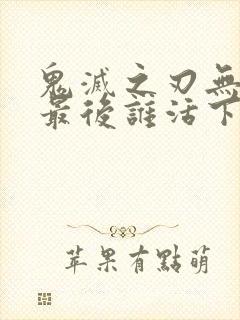 鬼滅之刃無
最後誰活下
苹果有點萌